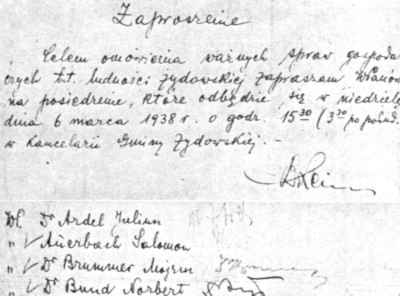 Zaproszenie
Celem omówienia ważnych spraw gospodar
czych tut. ludności żydowskiej zapraszam WPanów
na posiedzenie, które odbędzie się w niedzielę
dnia 6 marca 1938 r. o godz. 15³⁰ (3³⁰ po połud.
w kancelarii Gminy Żydowskiej. –
Wł. Dr Ardel Juliusz
" √ Auerbach Salomon
" √ Dr Brummer Mojżesz
" √ Dr Bund Norbert